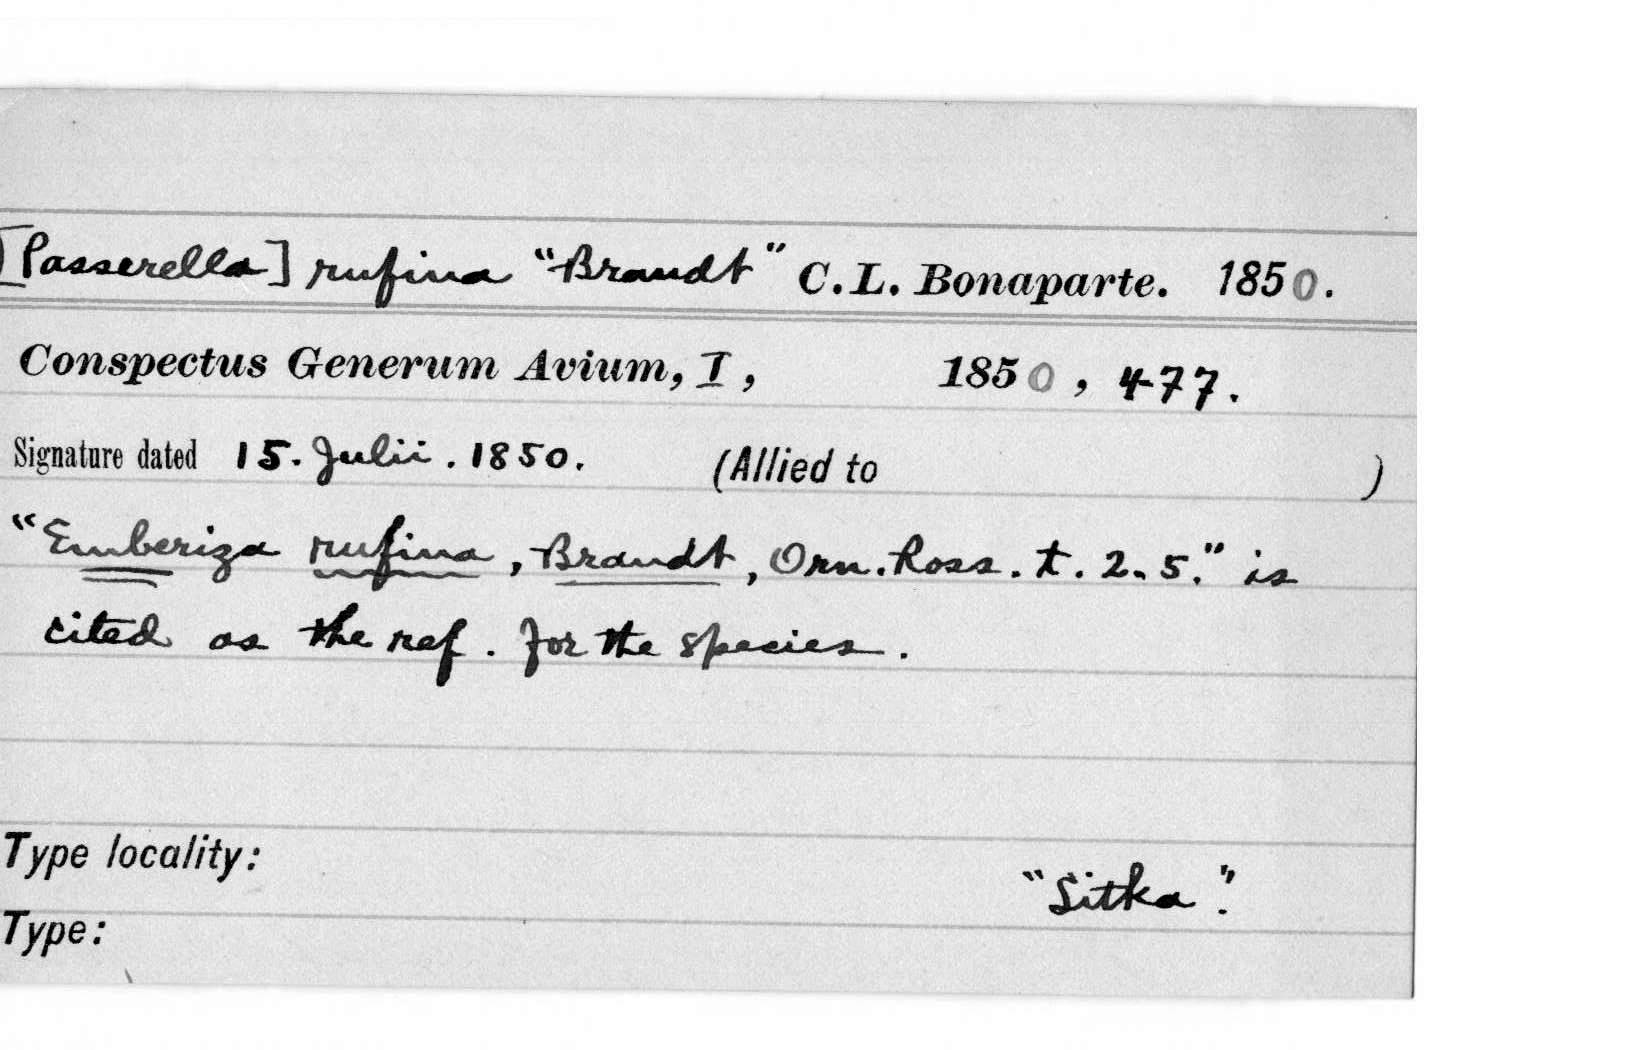 [Passerella] rufina "Brandt" C. L. Bonaparte. 1850.
Conspectus Generum Avium, I, 1850, 477.
Signature dated 15. Julii. 1850. (Allied to )
"Emberiza rufina, Brandt, Orn. Ross. t. 2. 5." is
cited as the ref. for the species.
Type locality:
"Sitka".
Type: